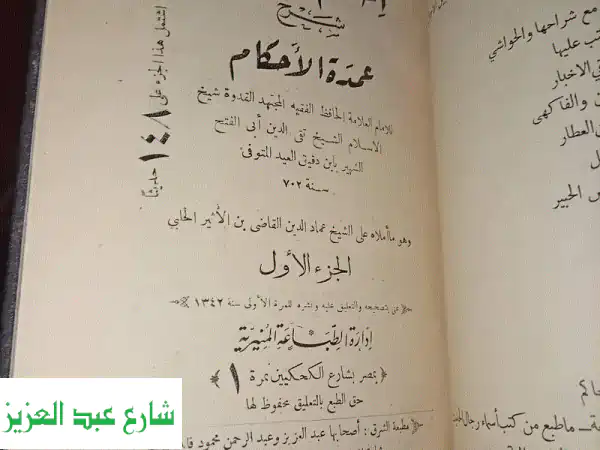 شرح
عمدة الأحكام
للامام العلامة الحافظ الفقيه المجتهد القدوة شيخ
الاسلام الشيخ تقى الدين أبى الفتح
الشهير بابن دقيق العيد المتوفى
سنة ٧٠٢
وهو ما أملاه على الشيخ عماد الدين القاضى بن الأثير الحلبي
الجزء الأول
عنى بتصحيحه والتعليق عليه ونشره للمرة الأولى سنة ١٣٤٢
إدارة الطباعة المنيرية
بمصر بشارع الكحكيين نمرة ١
حق الطبع بالتعليق محفوظ لها
مطبعة الشرق : أصحابها عبد العزيز وعبد الرحمن محمود
اشتمل هذا الجزء على
حديثا
مع شراحها والحواشي
كتب عليها
في الاخبار
والفاكهى
العطار
الحبير
ما طبع من كتب أسماء رجال
شارع عبد العزيز